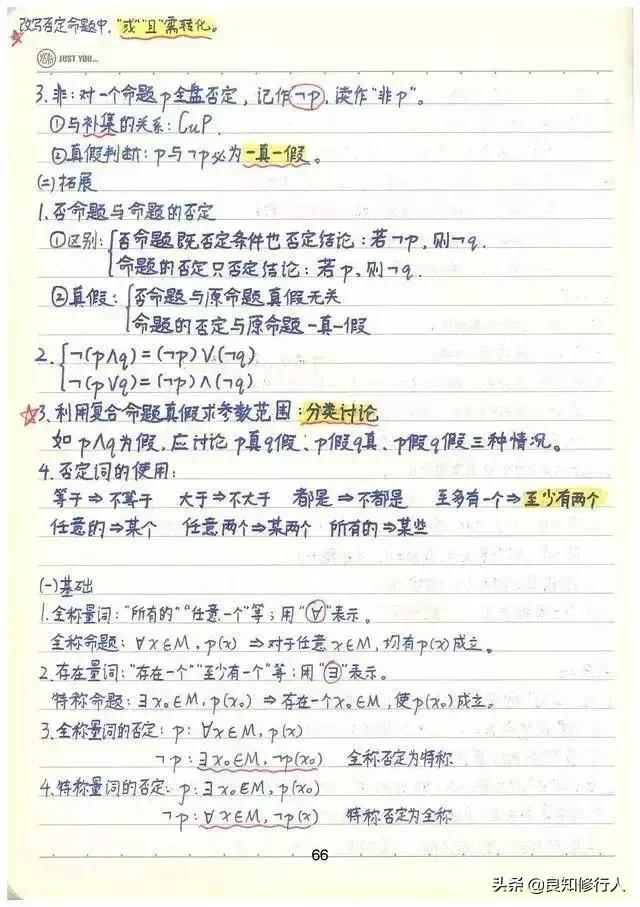 改写否定命题中,"或""且"需转化。
JUST YOU...
3.非:对一个命题p全盘否定,记作¬p,读作"非p"。
①与补集的关系:∁uP.
②真假判断:p与¬p必为一真一假。
(二)拓展
1.否命题与命题的否定
①区别:{否命题既否定条件也否定结论:若¬p,则¬q.
命题的否定只否定结论:若p,则¬q.
②真假:{否命题与原命题真假无关
命题的否定与原命题一真一假
2.{¬(p∧q)=(¬p)∨(¬q)
¬(p∨q)=(¬p)∧(¬q)
3.利用复合命题真假求参数范围:分类讨论
如p∧q为假,应讨论p真q假、p假q真、p假q假三种情况。
4.否定词的使用:
等于⇒不等于 大于⇒不大于 都是⇒不都是 至多有一个⇒至少有两个
任意的⇒某个 任意两个⇒某两个 所有的⇒某些
(一)基础
1.全称量词:"所有的""任意一个"等;用"∀"表示。
全称命题:∀x∈M,p(x)⇒对于任意x∈M,均有p(x)成立。
2.存在量词:"存在一个""至少有一个"等;用"∃"表示。
特称命题:∃x₀∈M,p(x₀)⇒存在一个x₀∈M,使p(x₀)成立。
3.全称量词的否定:p:∀x∈M,p(x)
¬p:∃x₀∈M,¬p(x₀) 全称否定为特称
4.特称量词的否定:p:∃x₀∈M,p(x₀)
¬p:∀x∈M,¬p(x) 特称否定为全称
66
头条@良知修行人